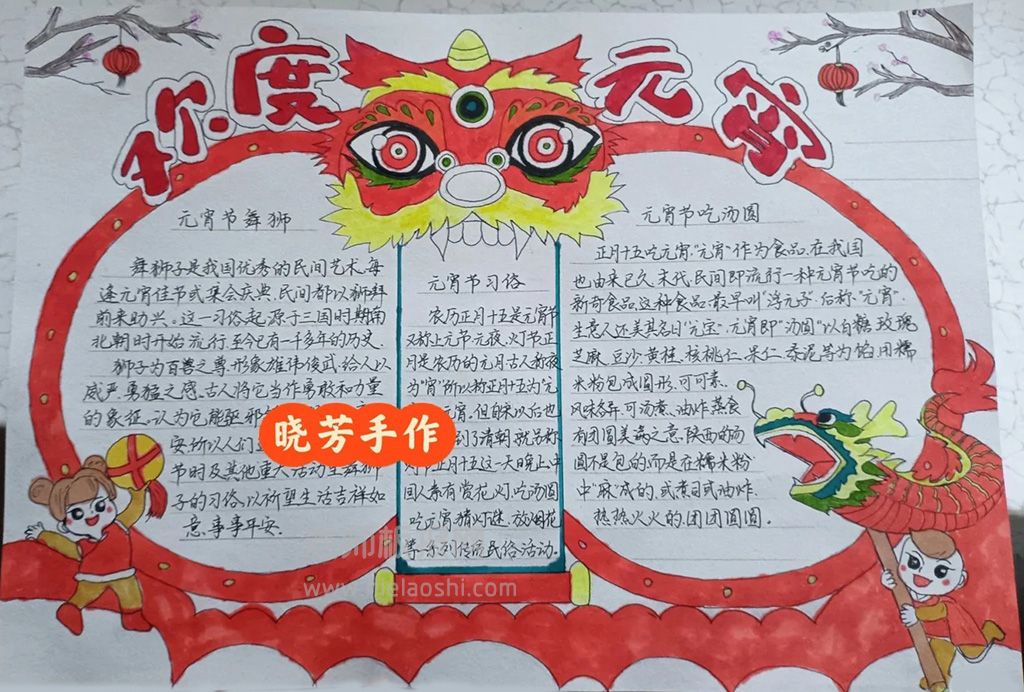 欢度元宵
元宵节舞狮
舞狮子是我国优秀的民间艺术,每
逢元宵佳节或集会庆典,民间都以狮舞
前来助兴。这一习俗起源于三国时期,南
北朝时开始流行,至今已有一千多年的历史.
狮子为百兽之尊,形象雄伟俊武,给人以
威严、勇猛之感.古人将它当作勇敢和力量
的象征。认为它能驱邪
安.所以人们
节时及其他重大活动里舞狮
子的习俗,以祈望生活吉祥如
意,事事平安.
元宵节习俗
农历正月十五是元宵节
又称上元节、元夜、灯节.正
月是农历的元月,古人称夜
为"宵",所以称正月十五为"元
元宵.但自宋以后也
到了清朝,就另称
灯节.正月十五这一天晚上,中
国人素有赏花灯、吃汤圆
吃元宵、猜灯谜、放烟花
等一系列传统民俗活动.
元宵节吃汤圆
正月十五吃元宵."元宵"作为食品,在我国
也由来已久.宋代,民间即流行一种元宵节吃的
新奇食品.这种食品,最早叫"浮元子",后称"元宵".
生意人还美其名曰"元宝".元宵即"汤圆"以白糖、玫瑰
芝麻、豆沙、黄桂、核桃仁、果仁、枣泥等为馅,用糯
米粉包成圆形,可可素.
风味各异.可汤煮、油炸、蒸食
有团圆美满之意.陕西的汤
圆不是包的,而是在糯米粉
中"麻"成的,或煮司或油炸.
热热火火的,团团圆圆.
晓芳手作
www.elaoshi.com